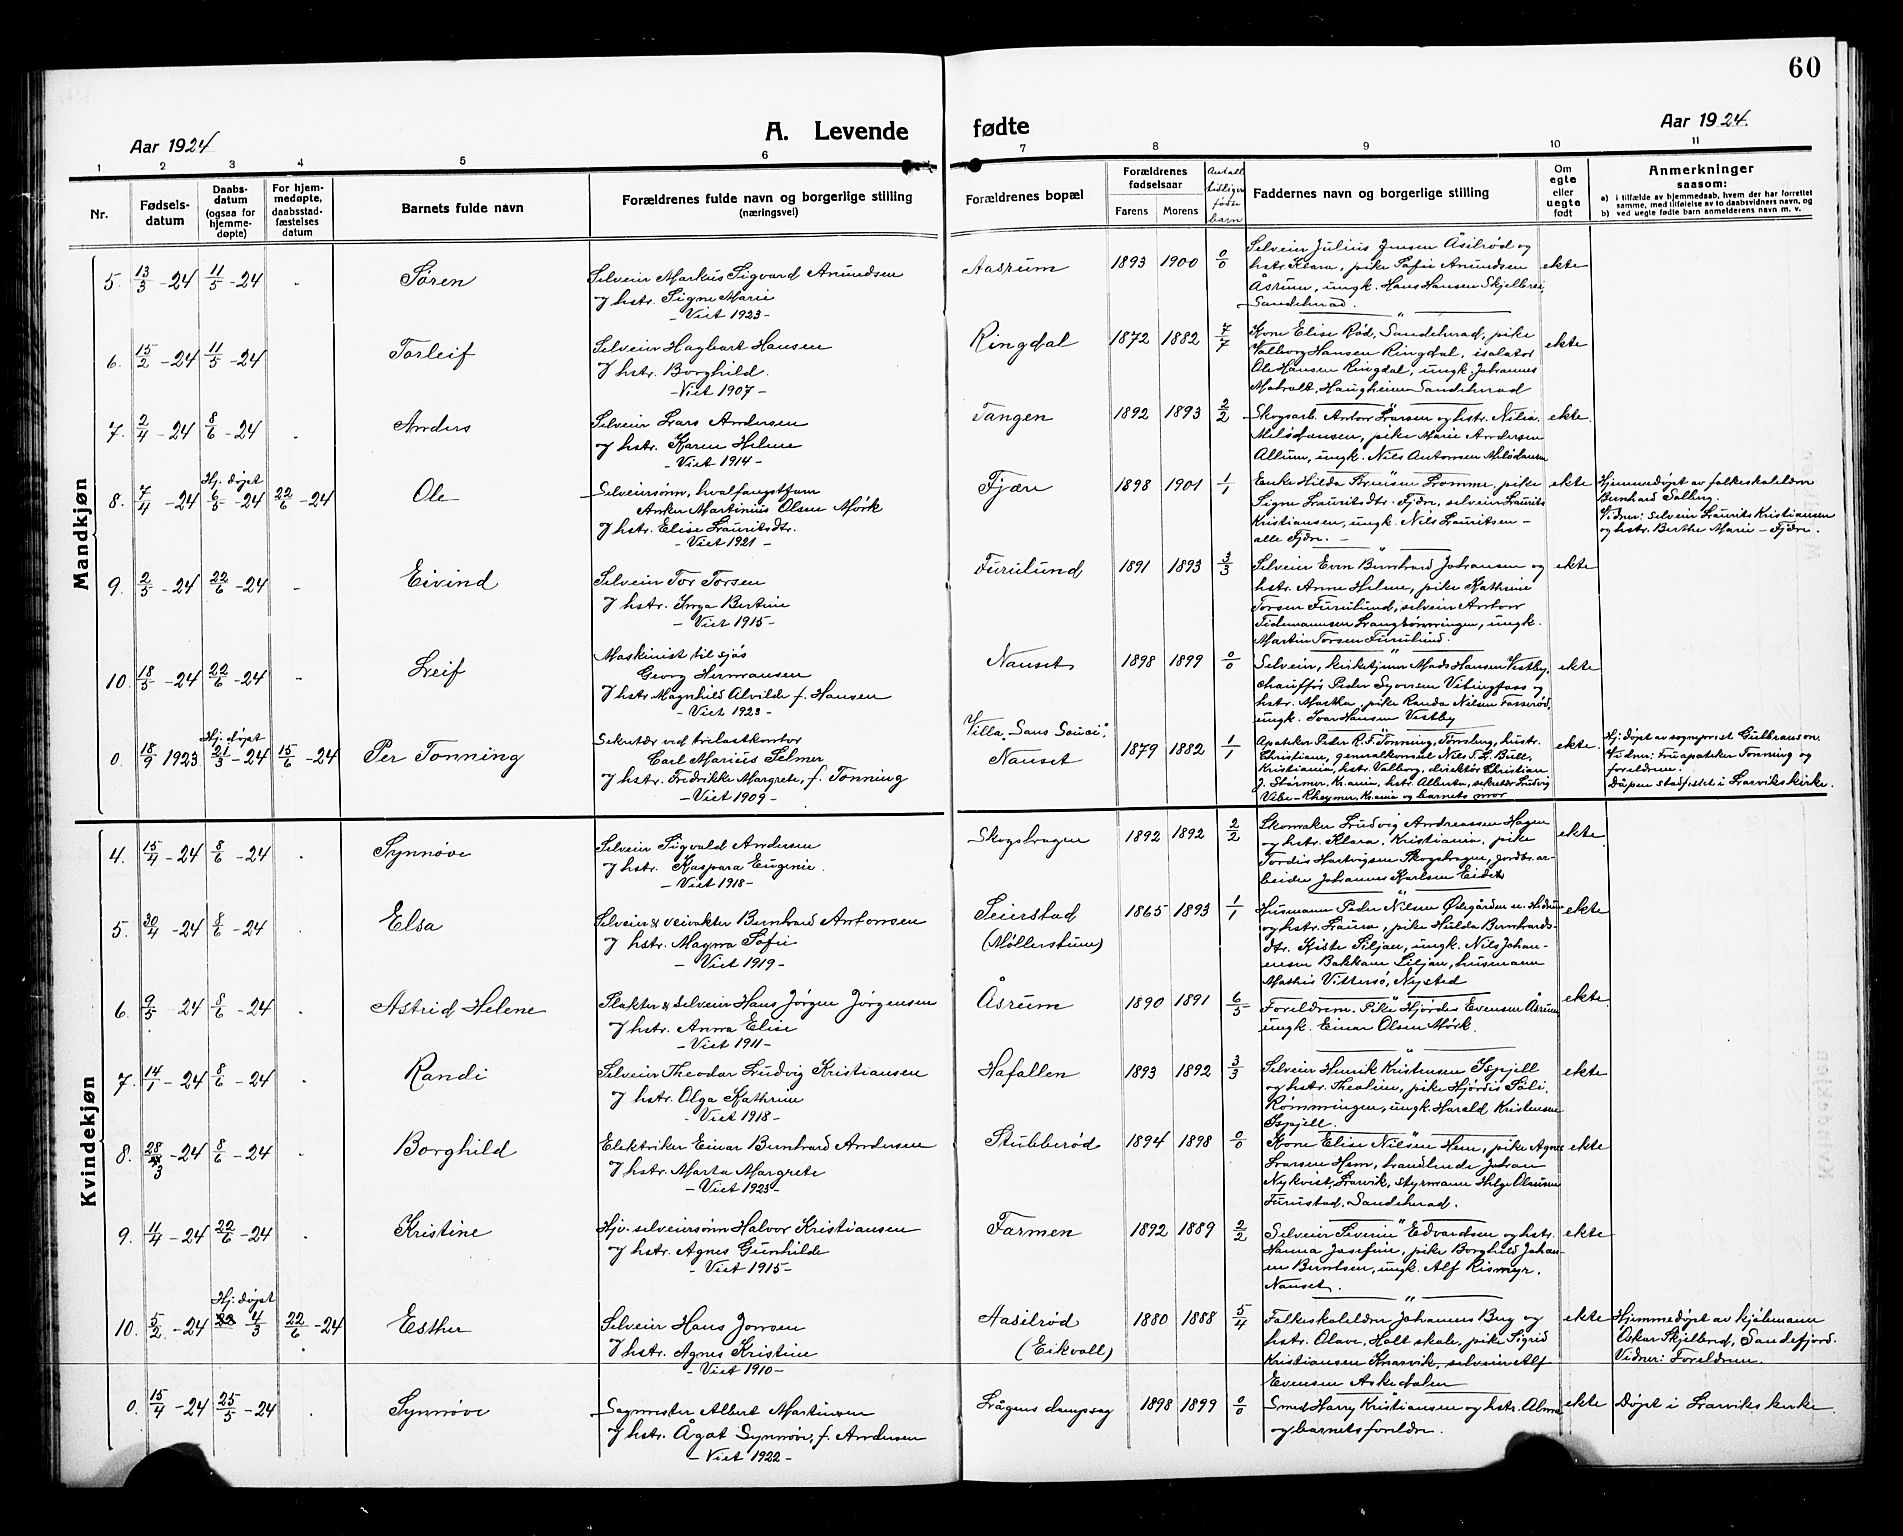 60
Aar 1924
A. Levende
fødte
Aar 1924.
1 2 3 4 5 6 7 8 9 10 11
Nr.
Fødsels-
datum
Daabs-
datum
(ogsaa for
hjemme-
døpte)
For hjem-
medøpte,
daabsstad-
fæstelses
datum
Barnets fulde navn
Forældrenes fulde navn og borgerlige stilling
(næringsvei)
Forældrenes bopæl
Forældrenes
fødselsaar
Farens Morens
Antall
tidligere
fødte
barn
Faddernes navn og borgerlige stilling
Om
egte
eller
uegte
født
Anmerkninger
saasom:
a) i tilfælde av hjemmedaab, hvem der har forrettet
samme, med tilføielse av to daabsvidners navn, og
b) ved uegte fødte barn anmelderens navn m. v.
Mandkjøn
5. 13/3 -24 11/5 -24 - Søren
Selveier Markus Sigvard Amundsen
og hstr. Signe Marie
- Viet 1923 -
Aasrum 1893 1900 0/0
Selveier Julius Jensen Åsilrød og
hstr. Klara, pike Sofie Amundsen
Åsrum, ungk. Hans Hansen Skjelbrei,
Sandeherad.
ekte
6. 15/2 -24 11/5 -24 Torleif
Selveier Hagbart Hansen
& hstr. Borghild.
- Viet 1907 -
Ringdal 1872 1882 7/7
Kone Elise Rød, Sandeherad, pike
Valborg Hansen Ringdal, isolatør
Ole Hansen Ringdal, ungk. Johannes
Haugheim Sandeherad
ekte
7. 2/4 -24 8/6 -24 - Anders
Selveier Lars Andersen
og hstr. Karen Helene
- Viet 1914 -
Tangen 1892 1893 2/2
Skogsarb. Anton Larsen og hstr. Nilia
Melødansen, pike Marie Andersen
Allum, ungk. Nils Antonsen Melødansen
ekte.
8. 7/4 -24 Hj. døpt 6/5 -24 22/6 -24 Ole
Selveiersønn, hvalfangstform
Anker Martinius Olsen Mørk
& hstr. Elise Lauritsdtr.
- Viet 1921 -
Fjære 1898 1901 1/1
Enke Hilda Bruusen Lomme, pike
Signe Lauritsdtr. Fjære, selveier Laurits
Kristiansen, ungk. Nils Lauritsen -
alle Fjære. -
ekte
Hjemmedøpt av folkeskolelærer
Bernhard Salberg.
Vidner: selveier Laurits Kristiansen
og hstr. Berthe Marie - Fjære.
9. 2/5 -24 22/6 -24 - Eivind
Selveier Tor Torsen
& hstr. Inga Bertine
- Viet 1915 -
Furulund 1891 1893 3/3
Selveier Even Bernhard Johansen og
hstr. Anne Helene, pike Kathrine
Torsen Furulund, selveier Anton
Tidemannsen Langtørvingen, ungk.
Martin Torsen Furulund.
ekte
10. 18/5 -24 22/6 -24 - Leif
Maskinist til sjøs
Georg Hermansen
& hstr. Magnhild Alvilde f. Hansen
- Viet 1923 -
Nanset 1898 1899 0/0
Selveier, kirketjener Mads Hansen Vestby,
chauffør Peder Syversen Vitingfoss og
hstr. Martha, pike Randa Nilsen Fasserød,
ungk. Ivar Hansen Vestby
ekte
0. 18/9 1923 Hj. døpt 21/3 -24 15/6 -24 Per Tonning
Sekretær ved trelastkontor
Carl Marius Selmer
& hstr. Fredrikke Margrete, f. Tonning
- Viet 1909 -
Villa „Sans Souci“.
Nanset 1879 1882 1/1
Apoteker Peder R. F. Tonning, Tønsberg, hustr.
Christiane, generalkonsul Nils T. L. Bull,
Kristiania, hstr. Valborg, direktør Christian
J. Størmer, Krania, hstr. Alberta, sekretær Ludvig
Vibe-Rheymer, Krania og barnets mor
ekte.
Hj. døpt av sogneprest Gulbranson.
Vidner: Fru apoteker Tonning og
foreldrene.
Dåpen stadfestet i Larvikskirke.
Kvindekjøn
4. 15/4 -24 8/6 -24 . Synnøve
Selveier Sigvald Andersen
& hstr. Kaspara Eugenie.
- Viet 1918 -
Skogshagen 1892 1892 2/2
Skomaker Ludvig Andreassen Hagen
og hstr. Klara, Kristiania, pike
Tordis Hartvigsen Skogshagen, jordbr. ar-
beider Johannes Karlsen Eidet
ekte.
5. 30/4 -24 8/6 -24 Elsa
Selveier & veivakter Bernhard Antonsen
& hstr. Magna Sofie
- Viet 1919 -
Seierstad 1865 1893 1/1
(Møllerstuen)
Husmann Peder Nilsen Ødegården
og hstr. Laura, pike Hulda Bernhards-
dtr. Kiste Siljan, ungk. Nils Johan-
nesen Bakkane Siljan, husmann
Mathis Vittersø, Nysted
ekte
6. 9/5 -24 8/6 -24 . Astrid Helene
Slakter & selveier Hans Jørgen Jørgensen
& hstr. Anna Elise
- Viet 1911 -
Åsrum 1890 1891 6/5
Foreldrene. Pike Hjørdis Evensen Åsrum,
ungk. Einar Olsen Mørk.
ekte.
7. 14/1 -24 8/6 -24 . Randi
Selveier Theodor Ludvig Kristiansen
& hstr. Olga Kathrine
- Viet 1918 -
Hafallen 1893 1892 3/3
Selveier Henrik Kristensen Ispjell
og hstr. Thealine, pike Hjørdis Søli,
Rømmingen, ungk. Harald Kristensen
Ispjell.
ekte
8. 28/3 -24 8/6 -24 . Borghild
Elektriker Einar Bernhard Andersen
& hstr. Marta Margrete
- Viet 1923 -
Stubberød 1894 1898 0/0
Kone Elise Nilsen Hem, pike Agnes
Larsen Hem, handlende Johan
Nykvist, Larvik, styrmann Helge Olausen
Furustad, Sandeherad.
ekte
9. 4/4 -24 22/6 -24 . Kristine
Hjv. selveiersønn Halvor Kristiansen
og hstr. Agnes Gunhilde
- Viet 1915 -
Farmen 1892 1889 2/2
Selveier Severin Edvardsen og hstr.
Hanna Josefine, pike Borghild Johan-
ne Berntsen, ungk. Alf Rismyr.
Nanset.
ekte
10. 5/2 -24 Hj. døpt 4/3 22/6 -24 Esther
Selveier Hans Jonsen
& hstr. Agnes Kristine
- Viet 1910 -
Aasilrød 1880 1888 5/4
(Eikvoll)
Folkeskolelærer Johannes Berg og
hstr. Olave, Holt skole, pike Sigrid
Kristiansen Knarvik, selveier Alf
Evensen Askedalen
ekte
Hjemmedøpt av kjølemann
Oskar Skjelbred, Sandefjord.
Vidner: Foreldrene.
0. 15/4 -24 25/5 -24 . Synnøve
Sagmester Albert Martinsen
& hstr. Ågot Synnøve, f. Andersen
- Viet 1922 -
Lågens dampsag 1898 1899 0/0
Smed Harry Kristiansen og hstr. Alma
og barnets foreldre.
ekte
Døpt i Larviks kirke.